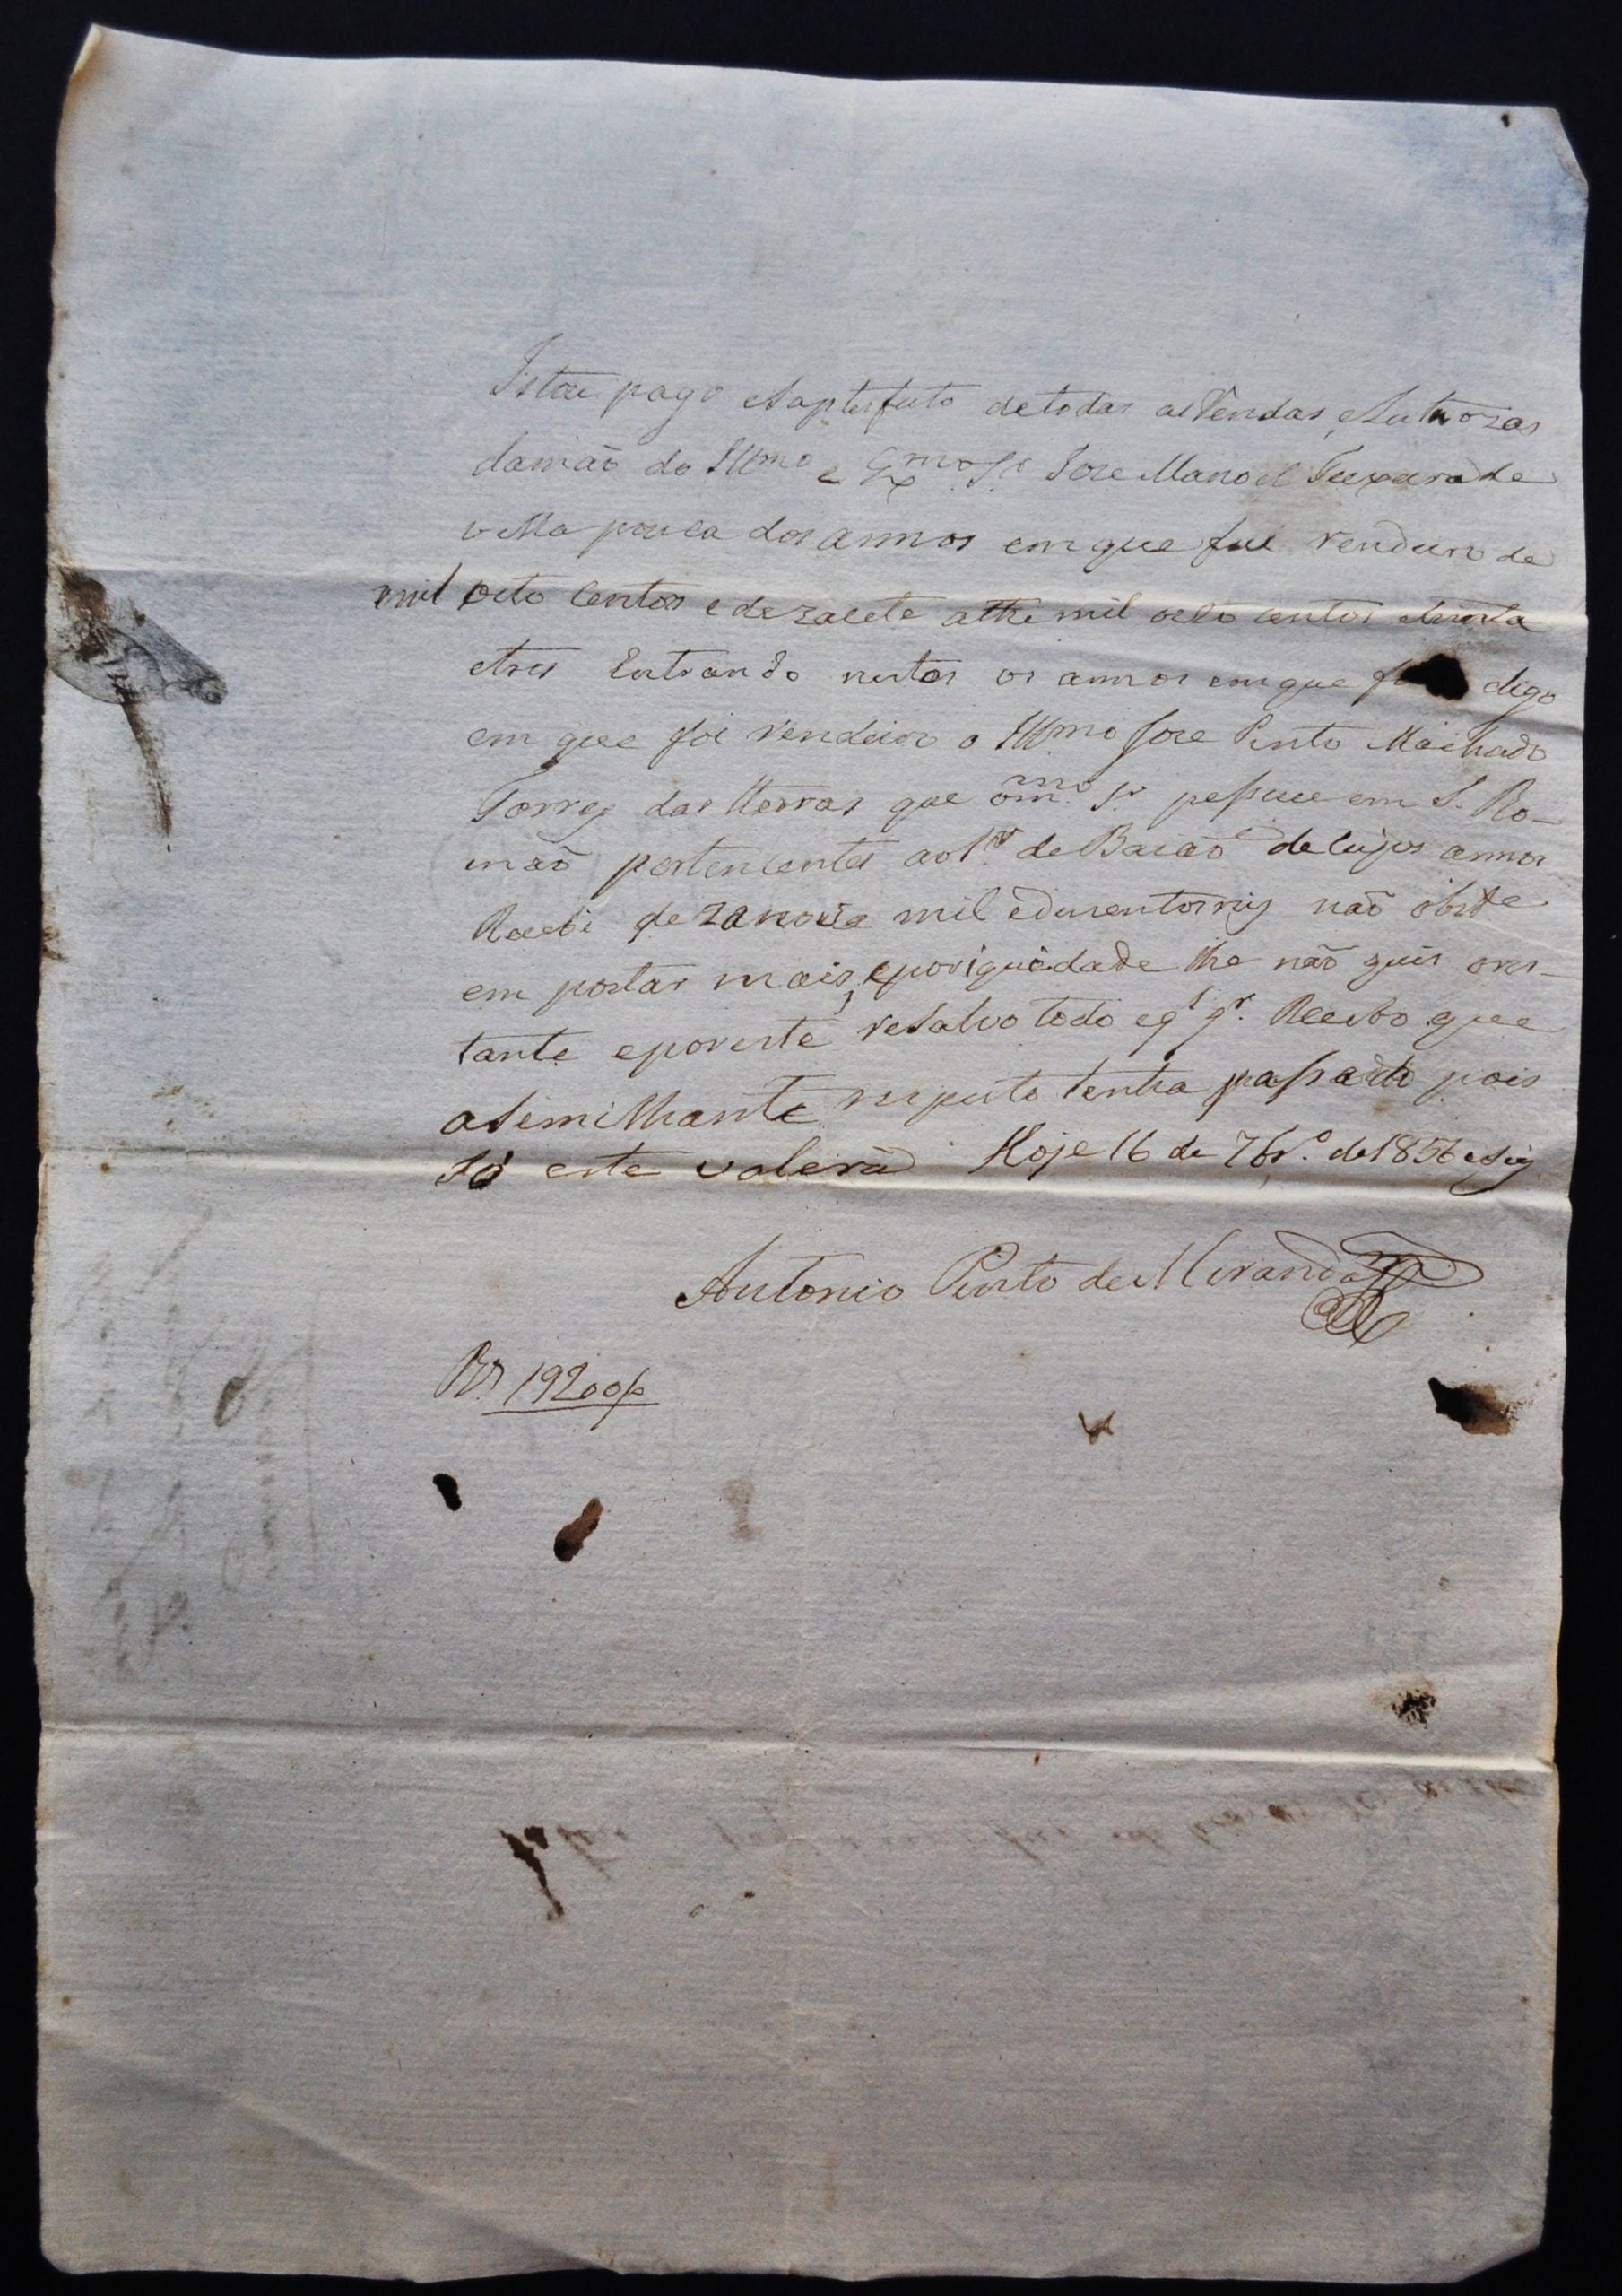 Istou pago e saptesfeito de todas as Rendas e Lutuozas
damaõ do Illmo e Exmo Sr Jose Manoel Teixeira de
villa pouca dos annos em que foi rendeiro de
mil oito Centos e dezacete athe mil oito centos e trinta
e tres Entrando nestes os annos em que digo
em que foi rendeiro o Illmo Jose Pinto Machado
Torres das tterras que o mmo Sr pessue em S. Ro-
maõ pertencentes ao de Baiaõ de cujos annos
Recebi dezanove mil e duzentos reis naõ obste
em portar mais, e por iquidade lhe não quis o res-
tante e por este resalvo todo e ql qr. Recibo que
a Similhante respeito tenha passado pois
só este valerá Hoje 16 de 7br.º de 1856 e sig
Antonio Pinto de Miranda
Rs 19200